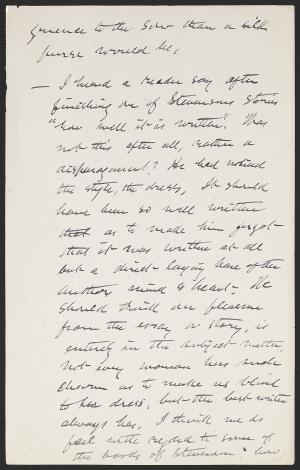 quence to the sow than a silk
purse would be.
— I heard a reader say after
finishing one of Stevensons stories
"how well it is written". Was
not this after all, rather a
disparagement? He had noticed
the style, the dress, It should
have been so well written
that as to make him forget
that it was written at all
but a direct laying bare of the
authors mind & heart. We
should think our pleasure
from the essay or story, is
entirely in the subject matter.
Not every woman has such
charm as to make us blind
to her dress, but the best writer
always has. I think we do
feel with regard to some of
the books of Stevenson: how